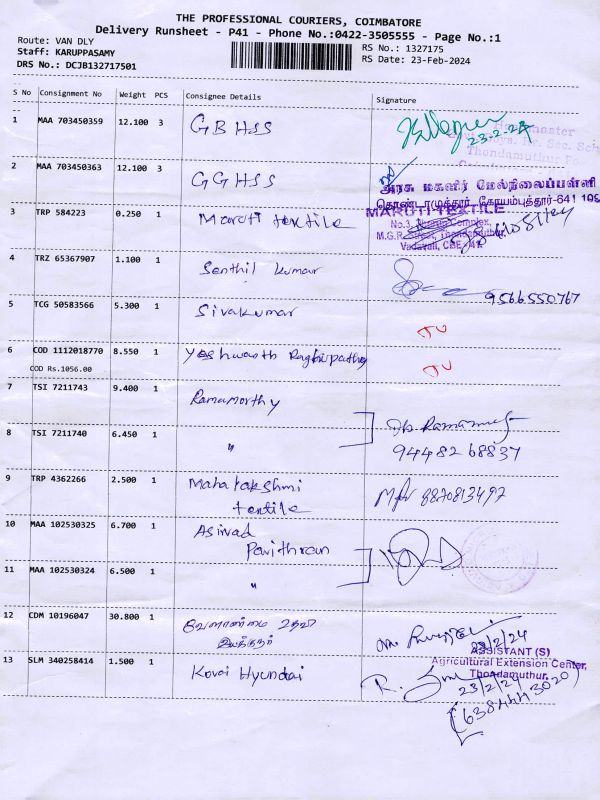 THE PROFESSIONAL COURIERS, COIMBATORE
Delivery Runsheet - P41 - Phone No.:0422-3505555 - Page No.:1
Route: VAN DLY
Staff: KARUPPASAMY
DRS No.: DCJB132717501
RS No.: 1327175
RS Date: 23-Feb-2024
S No Consignment No Weight PCS Consignee Details Signature
1 MAA 703450359 12.100 3 GBHSS
23-2-24
2 MAA 703450363 12.100 3 GGHSS
அரசு மகளிர் மேல்நிலைப்பள்ளி
தொண்டாமுத்தூர், கோயம்புத்தூர்-641 109
3 TRP 584223 0.250 1 Maruti textile
MARUTI TEXTILE
Vadavalli, CBE-41.
4 TRZ 65367907 1.100 1 Senthil kumar
9566550767
5 TCG 50583566 5.300 1 Sivakumar
6 COD 1112018770 8.550 1 Yeshwanth Raghupathy
COD Rs.1056.00
7 TSI 7211743 9.400 1 Ramamorthy
8 TSI 7211740 6.450 1 "
9448268837
9 TRP 4362266 2.500 1 Mahalakshmi
textile
8870813497
10 MAA 102530325 6.700 1 Asirvad
Pavithran
11 MAA 102530324 6.500 1 "
12 CDM 10196047 30.800 1 வேளாண்மை உதவி
இயக்குநர்
23/2/24
ASSISTANT (S)
Agricultural Extension Center,
Thondamuthur.
13 SLM 340258414 1.500 1 Kovai Hyundai
23/2/24
(6384443020)